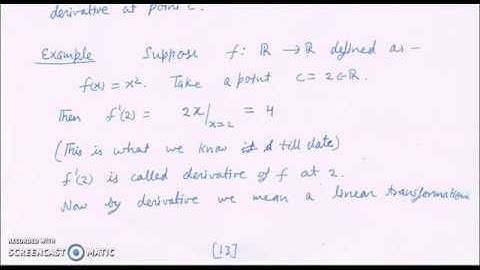 derivative at point c.
Example Suppose f: ℝ → ℝ defined as -
f(x) = x². Take a point c = 2 ∈ ℝ.
Then f'(2) = 2x|ₓ₌₂ = 4
(This is what we know till date)
f'(2) is called derivative of f at 2.
Now by derivative we mean a linear transformation
[13]
RECORDED WITH
SCREENCAST MATIC